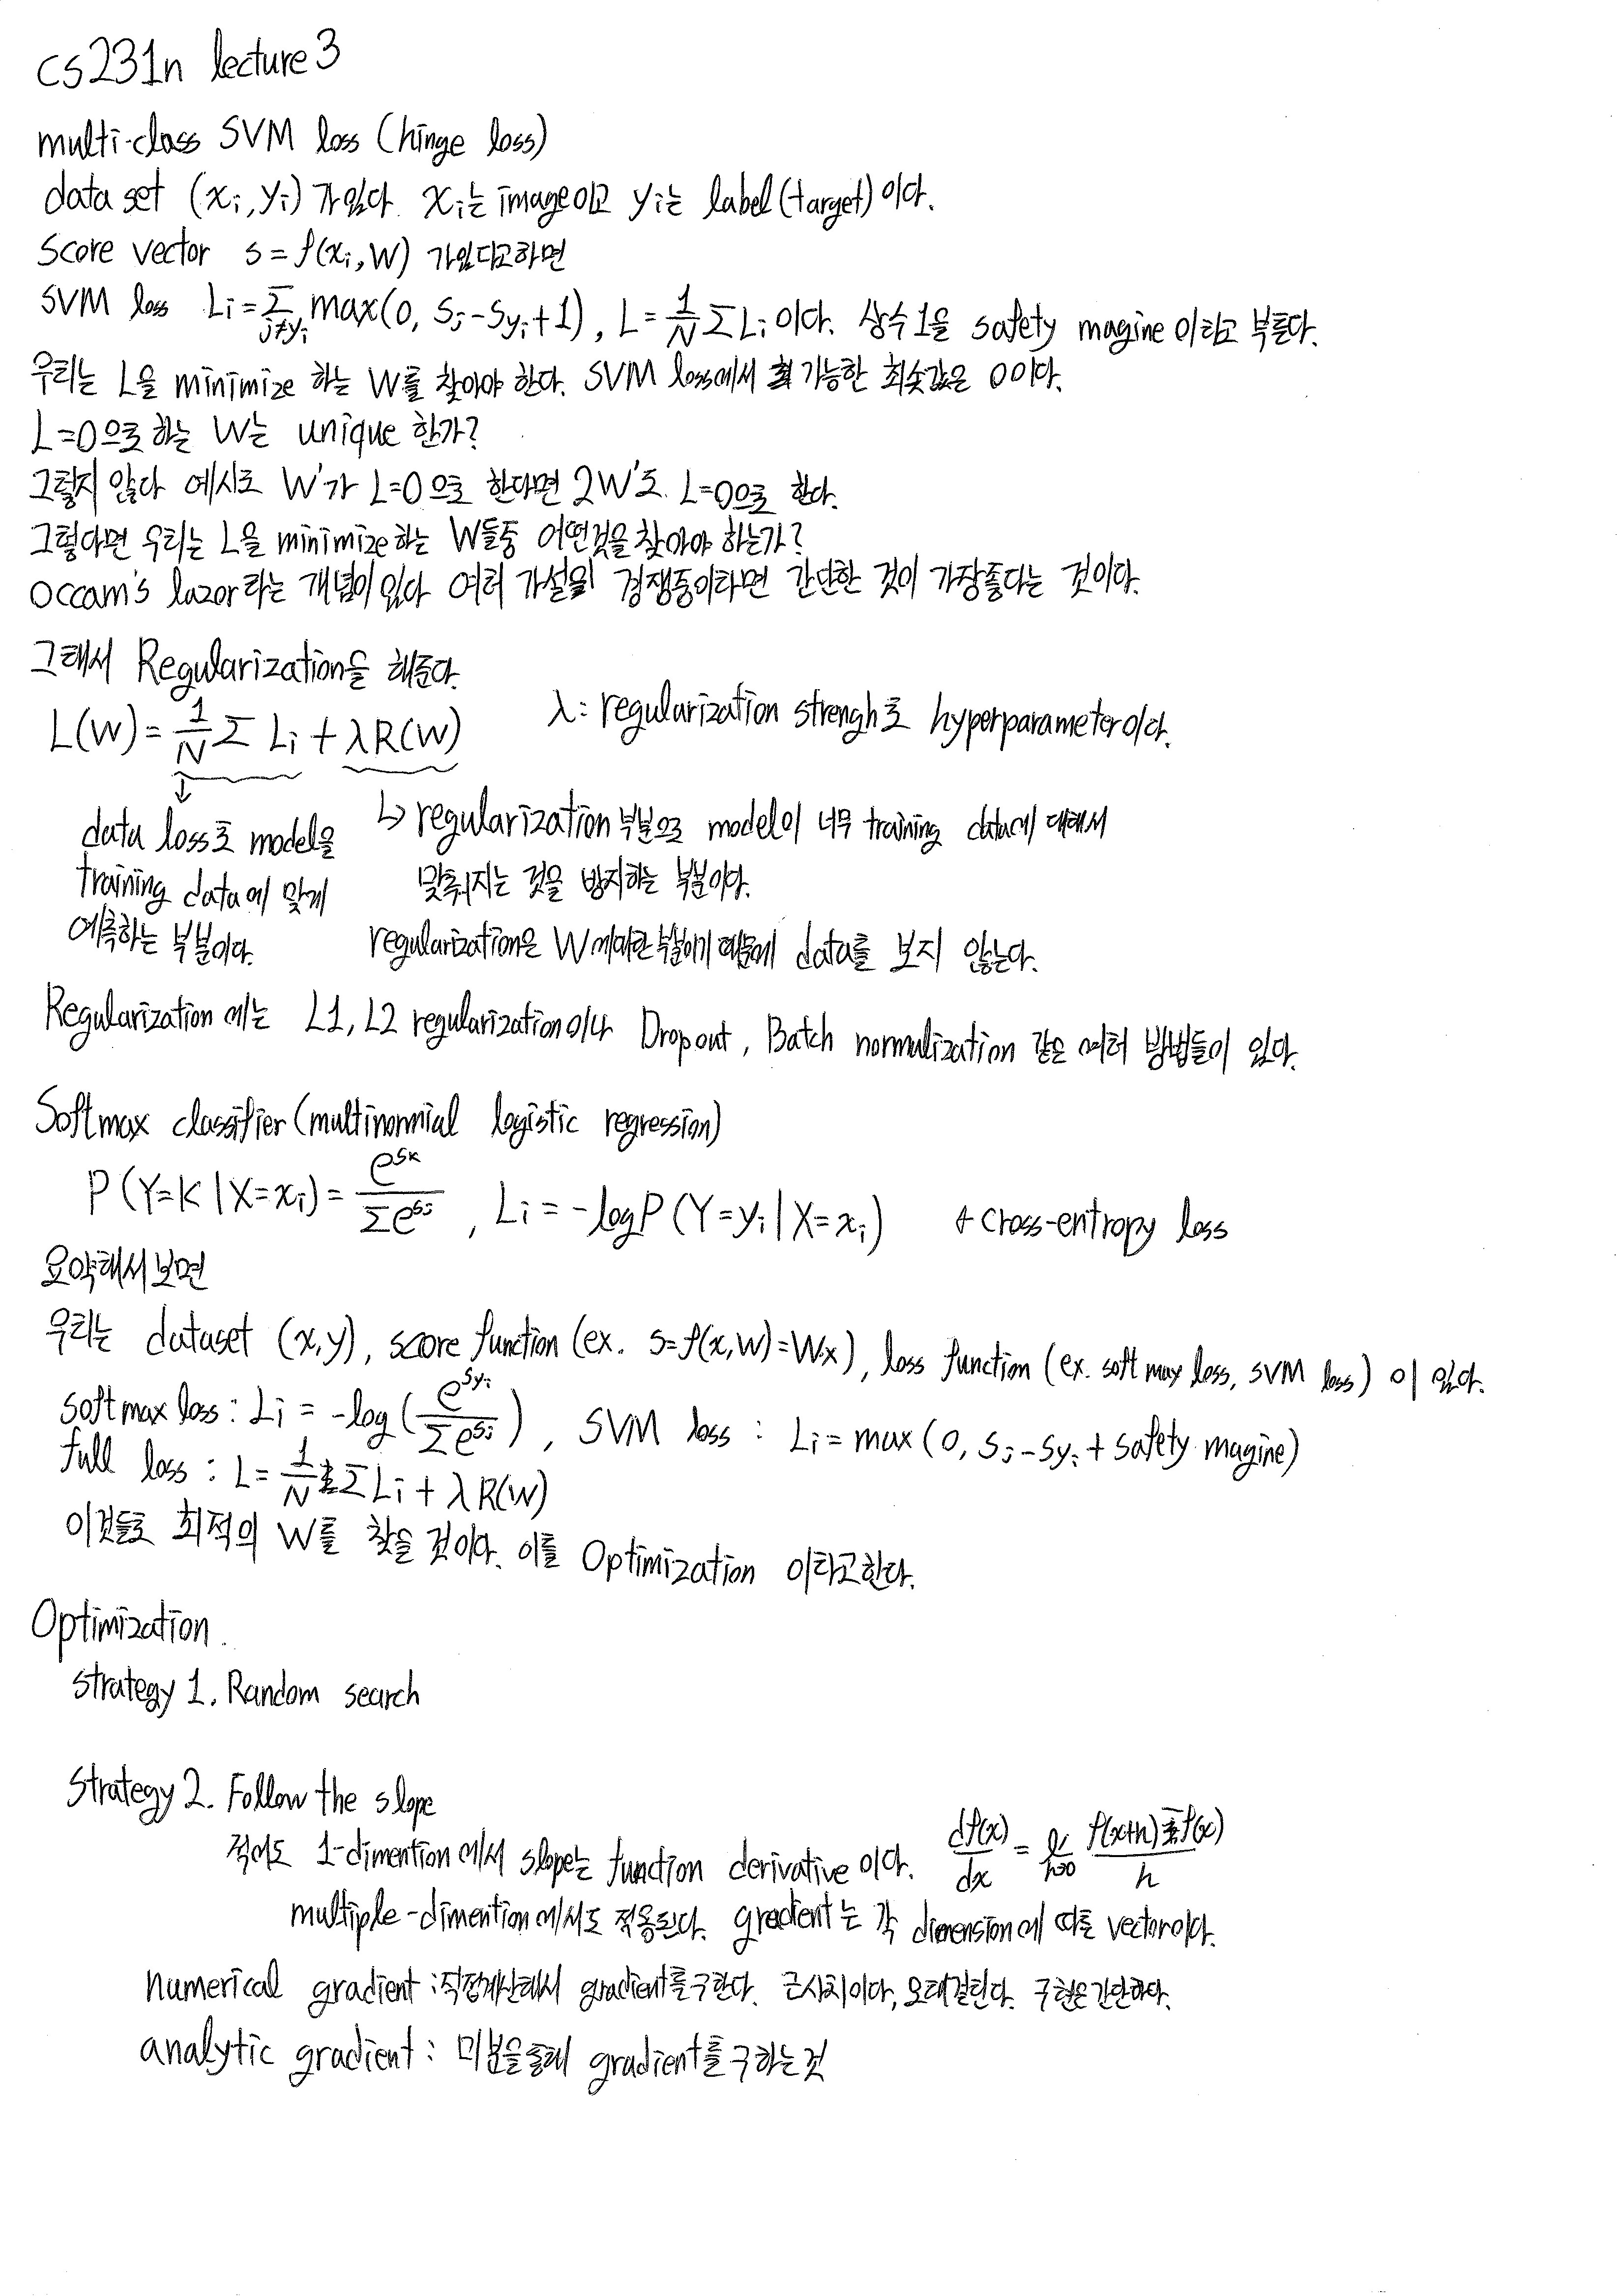 cs231n lecture 3
multi-class SVM loss (hinge loss)
data set (xᵢ, yᵢ) 가 있다. xᵢ는 image이고 yᵢ는 label(target)이다.
Score vector s = f(xᵢ, W) 가있다고하면
SVM loss Lᵢ = Σ_{j≠yᵢ} max(0, sⱼ - s_{yᵢ} + 1), L = 1/N Σ Lᵢ 이다. 상수 1을 safety magine 이라고 부른다.
우리는 L을 minimize 하는 W를 찾아야 한다. SVM loss에서 가능한 최솟값은 0이다.
L=0으로 하는 W는 unique 한가?
그렇지 않다 예시로 W'가 L=0 으로 한다면 2W'도 L=0으로 한다.
그렇다면 우리는 L을 minimize 하는 W들중 어떤것을 찾아야 하는가?
Occam's lazor 라는 개념이 있다 여러 가설이 경쟁중이라면 간단한 것이 가장좋다는 것이다.
그래서 Regularization을 해준다.
L(W) = 1/N Σ Lᵢ + λR(W)
λ: regularization strengh로 hyperparameter이다.
data loss로 model을
training data에 맞게
예측하는 부분이다.
↳ regularization 부분으로 model이 너무 training data에 대해서
맞춰지는 것을 방지하는 부분이다.
regularization은 W에대한 부분이기 때문에 data를 보지 않는다.
Regularization 에는 L1, L2 regularization이나 Dropout, Batch normalization 같은 여러 방법들이 있다.
Softmax classifier (multinomial logistic regression)
P(Y=k | X=xᵢ) = e^{sₖ} / Σ e^{sⱼ}, Lᵢ = -log P(Y=yᵢ | X=xᵢ) cross-entropy loss
요약해서보면
우리는 dataset (x,y), score function (ex. s=f(x,W)=Wx), loss function (ex. soft max loss, SVM loss) 이 있다.
softmax loss : Lᵢ = -log( e^{s_{yᵢ}} / Σ e^{sⱼ} ), SVM loss : Lᵢ = max(0, sⱼ - s_{yᵢ} + safety magine)
full loss : L = 1/N Σ Lᵢ + λR(W)
이것들로 최적의 W를 찾을 것이다. 이를 Optimization 이라고한다.
Optimization.
strategy 1. Random search
strategy 2. Follow the slope
적어도 1-dimention 에서 slope는 function derivative 이다. df(x)/dx = lim_{h→0} f(x+h) - f(x) / h
multiple-dimention에서도 적용된다. gradient는 각 dimension에 따른 vector이다.
numerical gradient : 직접계산해서 gradient를구한다. 근사치이다, 오래걸린다. 구현은간단하다.
analytic gradient : 미분을통해 gradient를구하는것